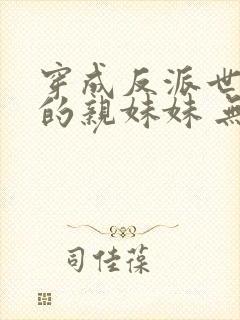 穿成反派世
的親妹妹 無
司佳葆